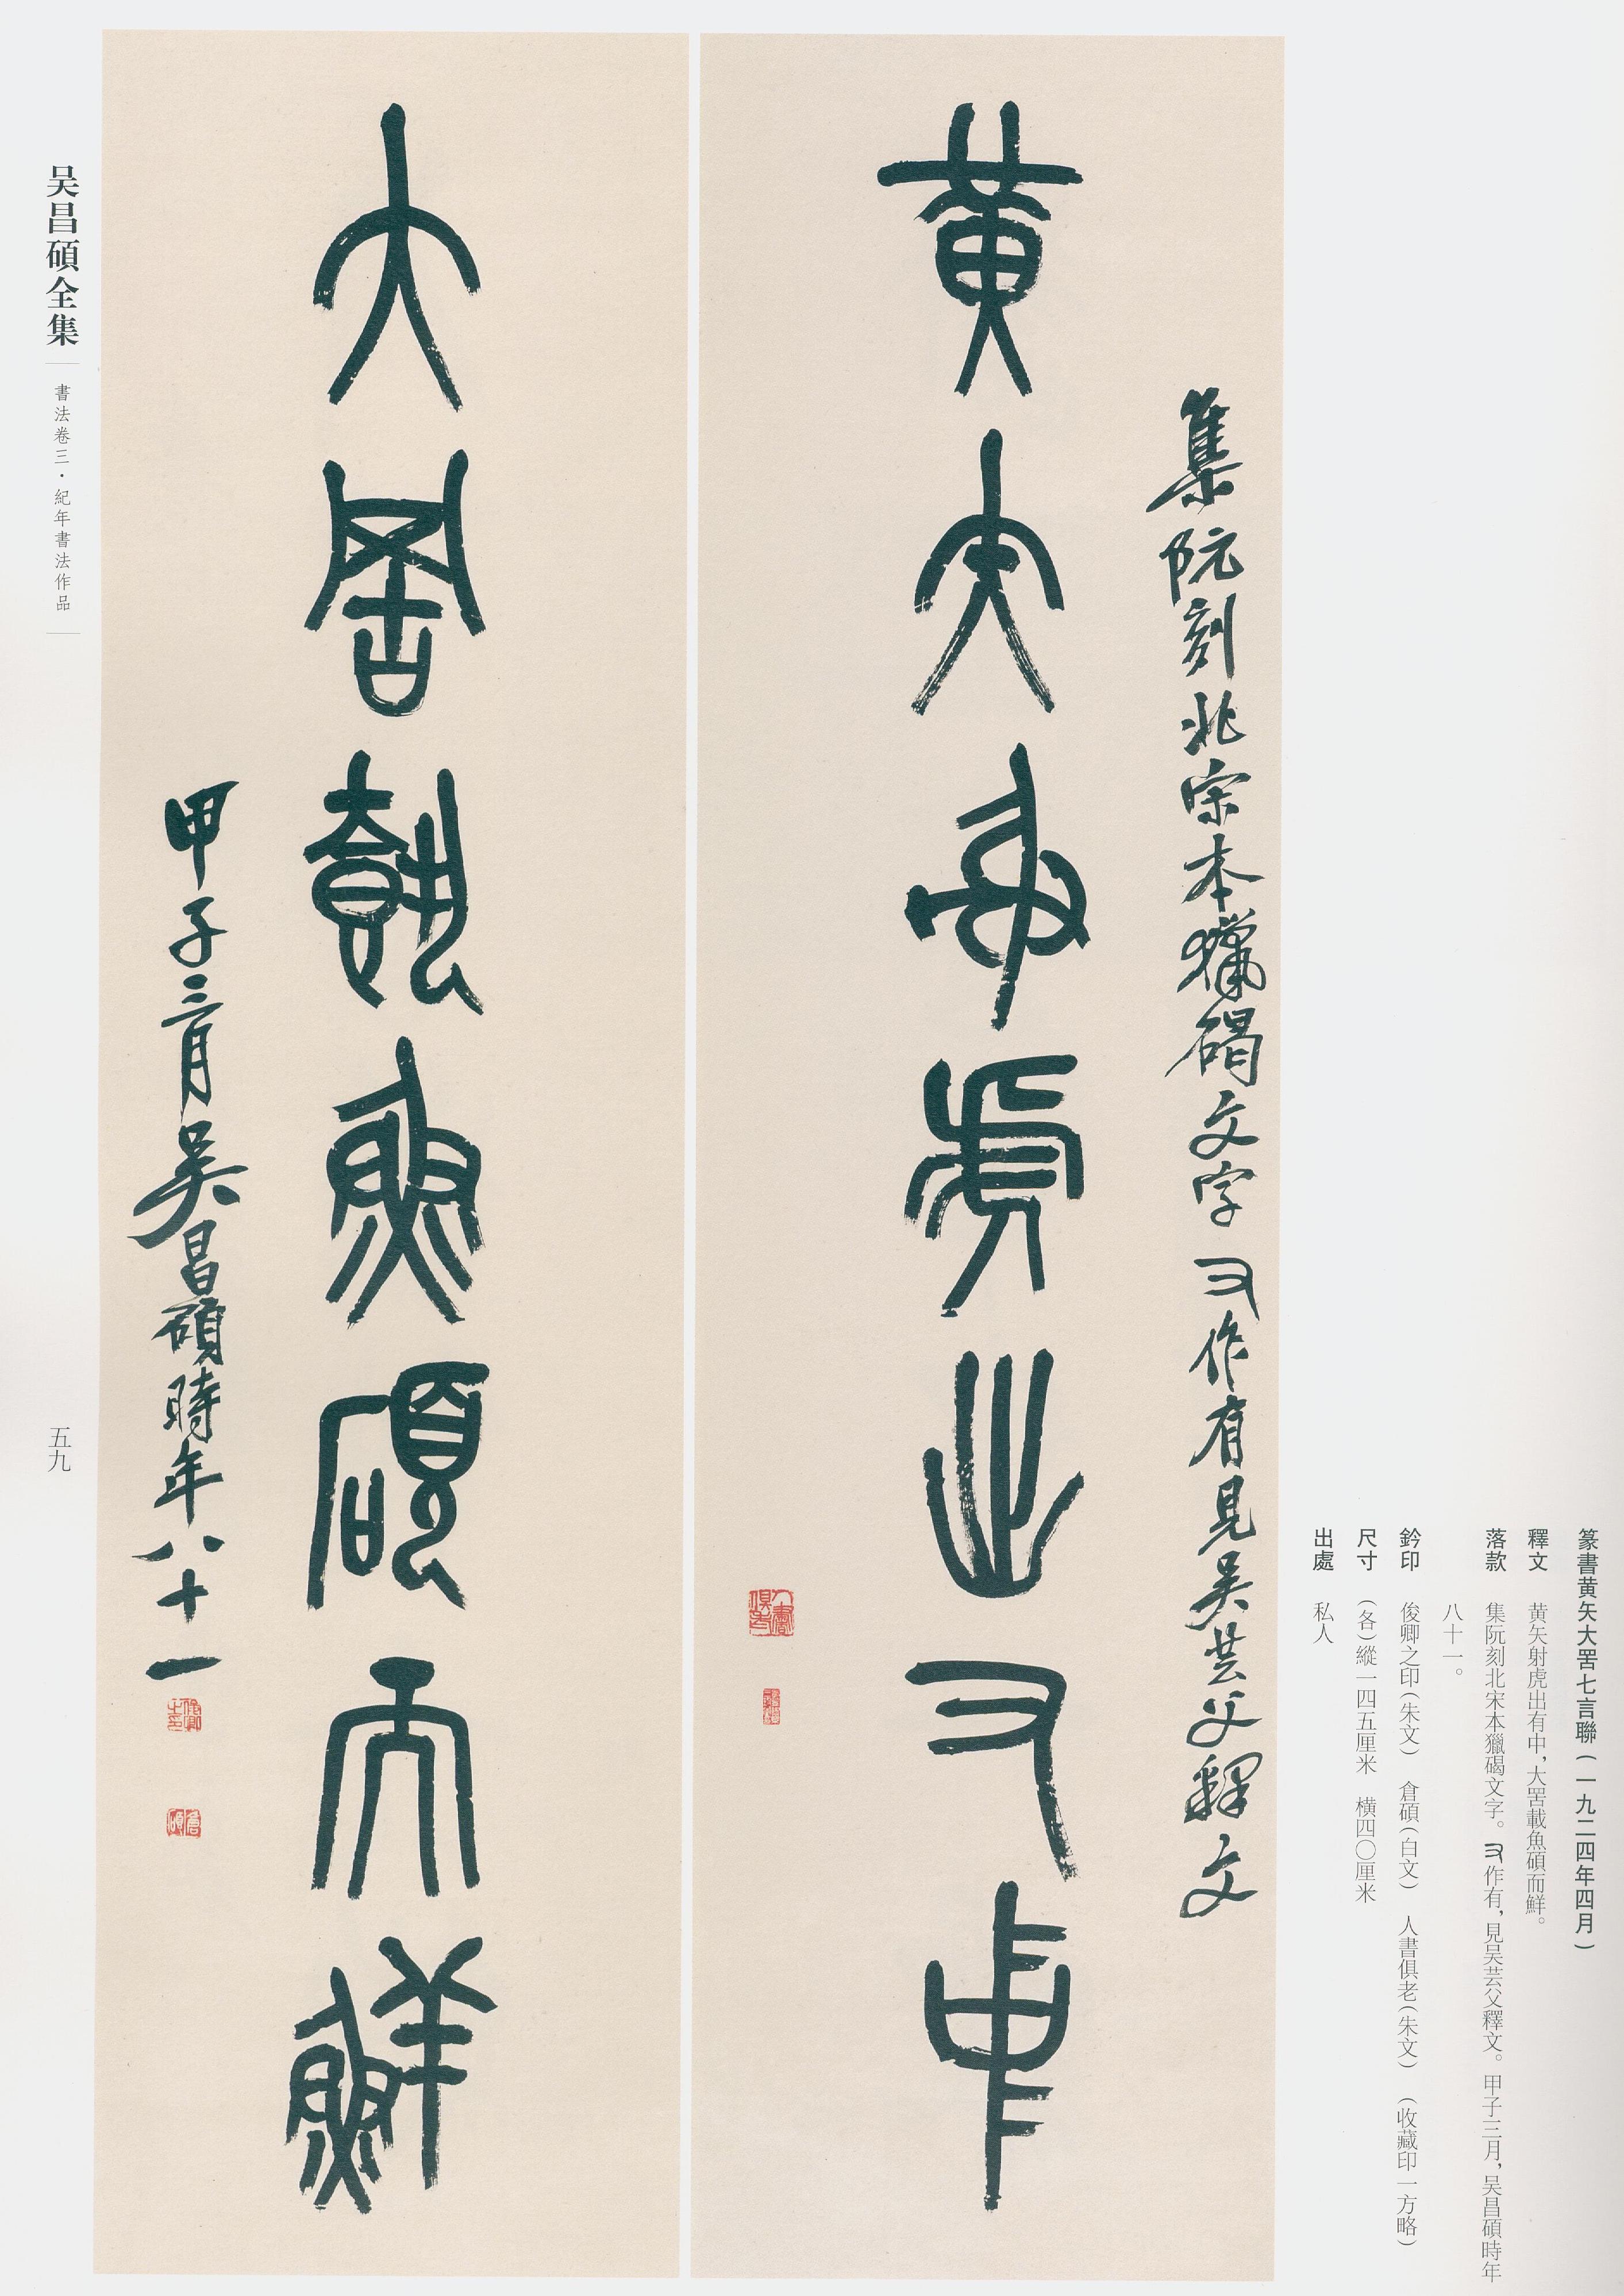 篆書黄矢大罟七言聯(一九二四年四月)
釋文 黄矢射虎出有中,大罟載魚碩而鮮。
落款 集阮刻北宋本獵碣文字。又作有,見吴芸父釋文。甲子三月,吴昌碩時年
八十一。
鈐印 俊卿之印(朱文) 倉碩(白文) 人書俱老(朱文) (收藏印一方略)
尺寸 (各)縱一四五厘米 横四〇厘米
出處 私人
集阮刻北宋本獵碣文字又作有見吴芸父釋文
黄矢射虎出又中
人書俱老
大罟載魚碩而鮮
甲子三月吴昌碩時年八十一
俊卿之印
倉碩
吴昌碩全集
書法卷三·紀年書法作品
五九